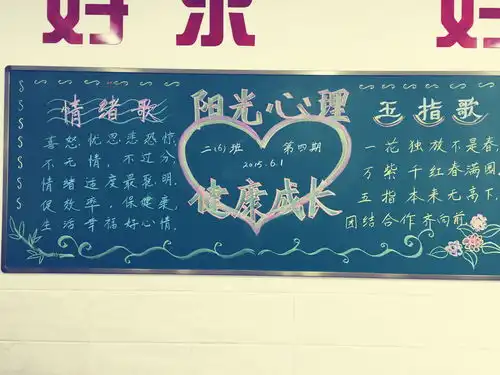 好
情绪歌
喜怒忧思悲恐惊
不无情，不过分，
情绪适度最聪明，
促效率，保健康，
生活幸福好心情。
阳光心理
二(6)班 第四期
2015.6.1
健康成长
五指歌
一花独放不是春
万紫千红春满园
五指本来无高下
团结合作齐向前